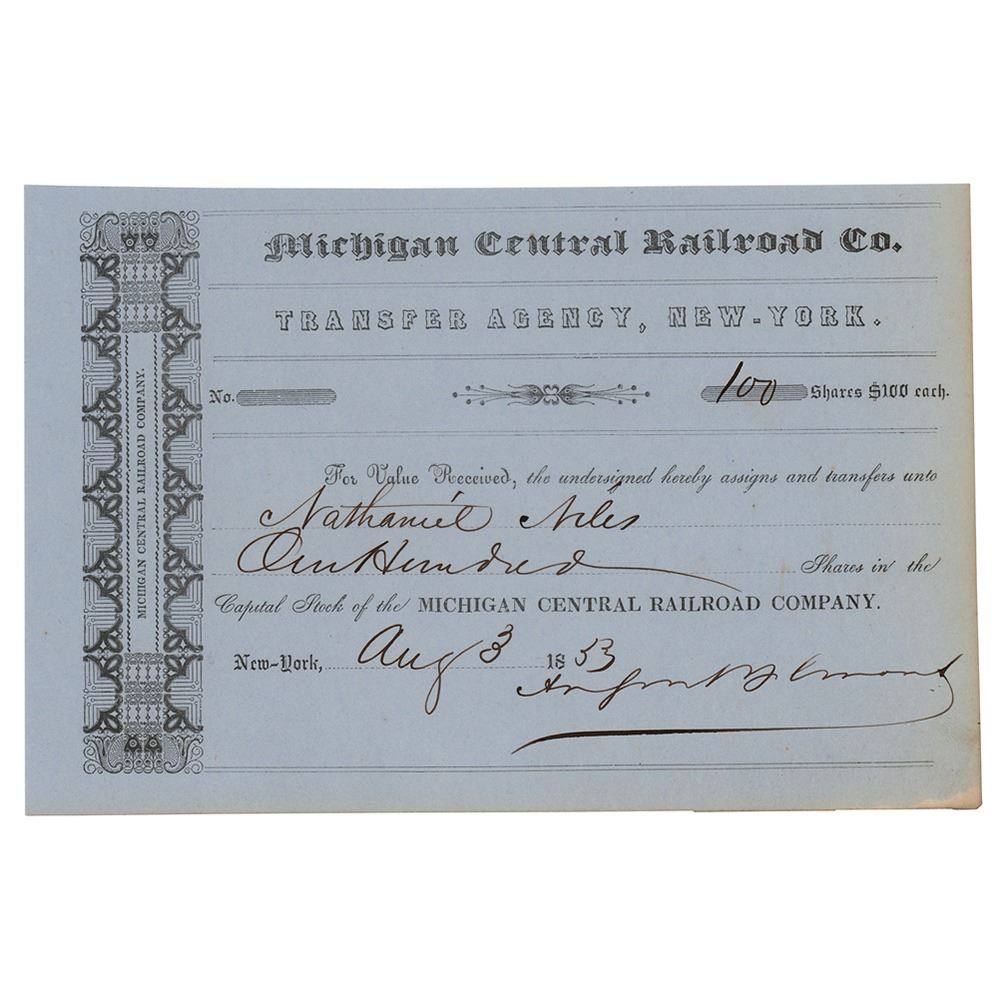 Michigan Central Railroad Co.
TRANSFER AGENCY, NEW-YORK.
No. 100 Shares $100 each.
For Value Received, the undersigned hereby assigns and transfers unto
Nathaniel Niles
One Hundred Shares in the
Capital Stock of the MICHIGAN CENTRAL RAILROAD COMPANY.
New-York, Aug 3 1853
August Belmont
MICHIGAN CENTRAL RAILROAD COMPANY.